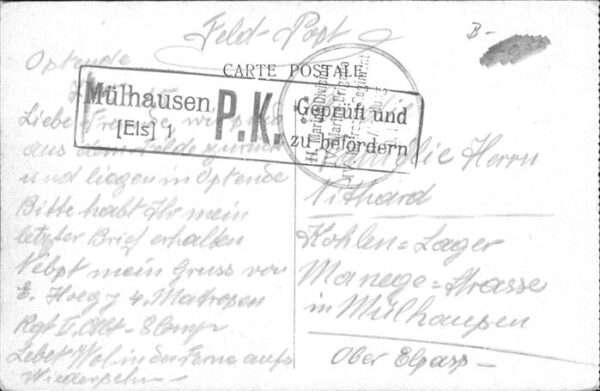 Feld-Post
B-
CARTE POSTALE
Mülhausen
[Els] 1
P.K.
Geprüft und
zu befördern
Optende
Liebe
aus dem Felde zurück
und liegen in Optende
Bitte habt Ihr mein
letzter Brief erhalten
Nebpt mein Gruss von
E. Hoegy 4. Matropen
Rgt II.
Lebet Wol in der Ferne aufs
Wiederpehn-
Familie Herrn
Nithard
Kohlen=Lager
Manege=Strasse
in Mülhaupen
Ober Elpasp-